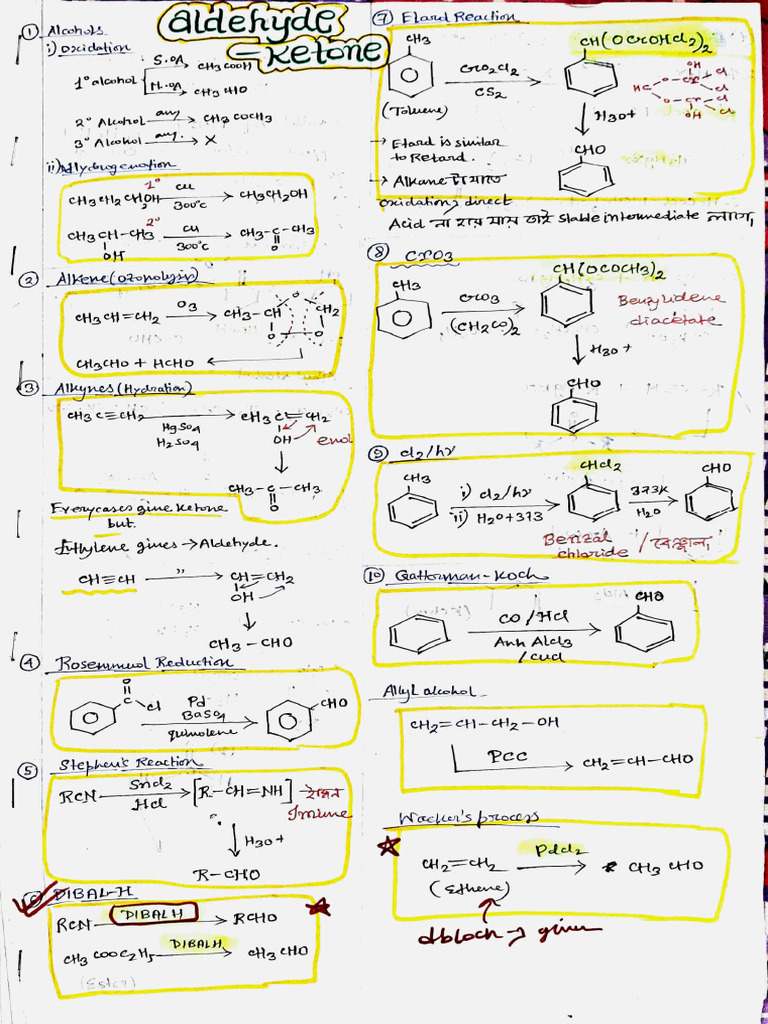 aldehyde
-ketone
① Alcohols
i) Oxidation
1° alcohol
S.OA → CH3COOH
M.OA → CH3CHO
2° Alcohol any → CH3COCH3
3° Alcohol any. → X
1°
CH3CH2CH2OH Cu 300°C → CH3CH2OH
2°
CH3CH-CH3 Cu 300°C → CH3-C-CH3
OH O
② Alkene (ozonolysis)
CH3CH=CH2 O3 → CH3-CH O CH2
O O
CH3CHO + HCHO ←
③ Alkynes (Hydration)
CH3C≡CH2 HgSO4 H2SO4 → CH3C=CH2
OH enol
CH3-C-CH3
O
Everycases give ketone
but.
Ethylene gives → Aldehyde.
CH≡CH " → CH=CH2
OH
CH3-CHO
④ Rosenmund Reduction
O
C Cl
Pd BaSO4 quinolene → CHO
⑤ Stephen's Reaction
RCN SnCl2 HCl → [R-CH=NH] →
Imine
H3O+
R-CHO
DIBAL-H
RCN DIBALH → RCHO
CH3COOC2H5 DIBALH → CH3CHO
(Ester)
⑦ Etard Reaction
CH3 CrO2Cl2 CS2 → CH(OCrOHCl2)2
(Toluene)
OH
HC O Cr Cl
O Cr Cl
OH Cl
H3O+
CHO
→ Etard is similar
to Retard.
→ Alkane
oxidation direct
Acid না হয় যায় তাই stable intermediate লাগে,
⑧ CrO3
CH3 CrO3 (CH2CO)2 → CH(OCOCH3)2
Benzylidene
diacetate
H3O+
CHO
⑨ Cl2/hν
CH3 i) Cl2/hν ii) H2O+373 → CHCl2 373K H2O → CHO
Benzal
chloride /
⑩ Gatterman-Koch
CO/HCl Anh AlCl3 /CuCl → CHO
Allyl alcohol
CH2=CH-CH2-OH
PCC → CH2=CH-CHO
Wacker's process
CH2=CH2 PdCl2 → CH3CHO
(Ethene)